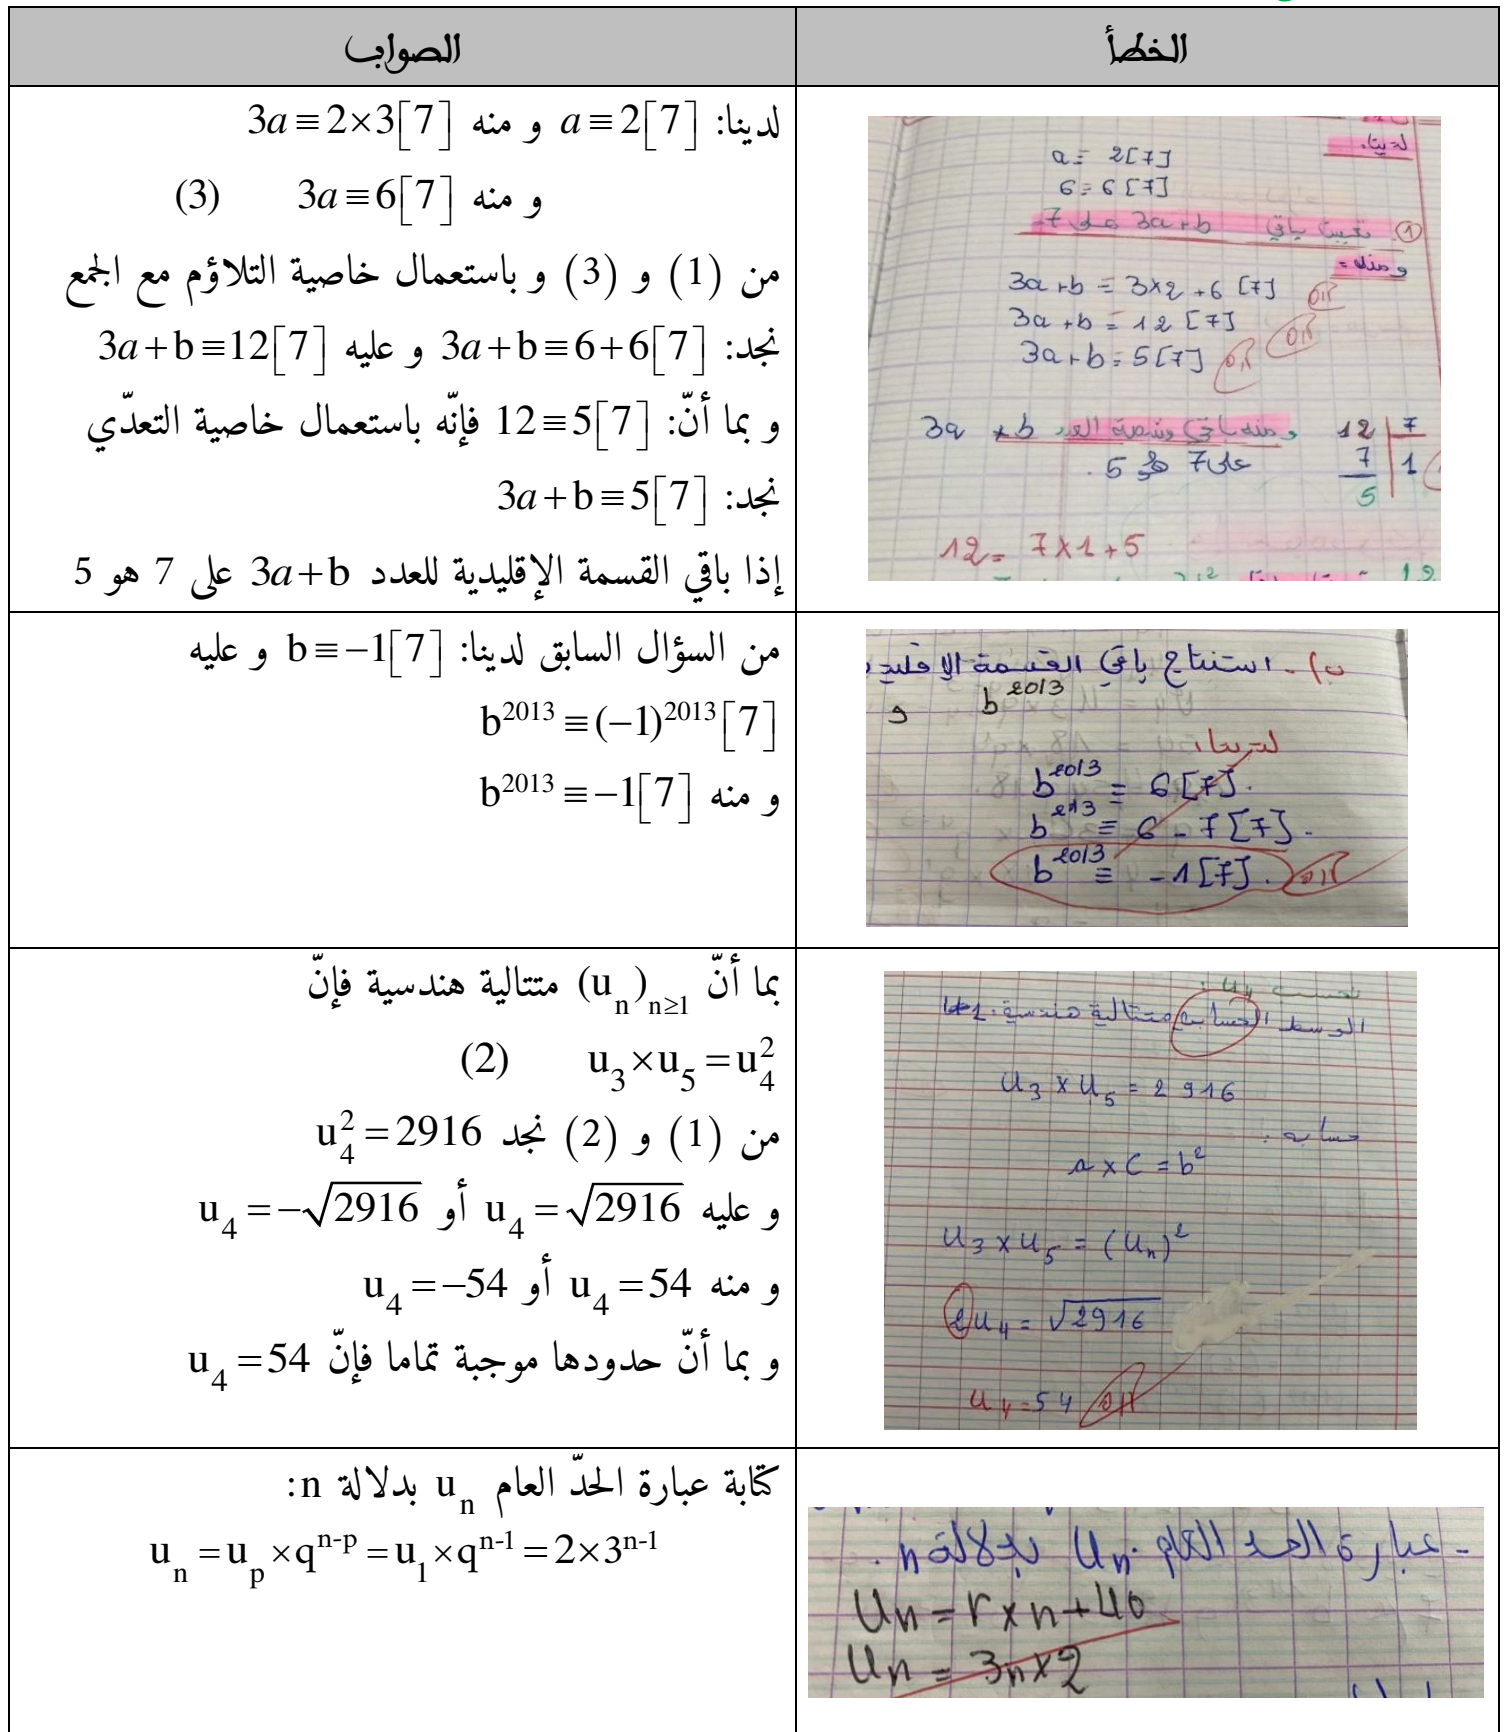 الخطأ
الصواب
لدينا:
a = 2[7]
6 = 6[7]
① تعيين باقي 3a+b على 7
ومنه =
3a+b = 3×2+6 [7]
3a+b = 12 [7]
3a+b = 5[7]
12 7
7 1
5
على 7 هو 5.
12 = 7×1+5
لدينا: a≡2[7] و منه 3a≡2×3[7]
و منه 3a≡6[7] (3)
من (1) و (3) و باستعمال خاصية التلاؤم مع الجمع
نجد: 3a+b≡6+6[7] و عليه 3a+b≡12[7]
و بما أنّ: 12≡5[7] فإنّه باستعمال خاصية التعدّي
نجد: 3a+b≡5[7]
إذا باقي القسمة الإقليدية للعدد 3a+b على 7 هو 5
ب)- استنتاج باقي القسمة الإقليدية
b²⁰¹³ و
لدينا:
b²⁰¹³ ≡ 6[7].
b²¹³ ≡ 6-7[7].
b²⁰¹³ ≡ -1[7].
من السؤال السابق لدينا: b≡−1[7] و عليه
b²⁰¹³≡(−1)²⁰¹³[7]
و منه b²⁰¹³≡−1[7]
نحسب u₄:
الوسط الحسابي متتالية هندسية
u₃ × u₅ = 2916
a×c = b²
u₃×u₅ = (uₙ)²
2u₄ = √2916
u₄=54
بما أنّ (uₙ)ₙ≥₁ متتالية هندسية فإنّ
u₃×u₅=u₄² (2)
من (1) و (2) نجد u₄²=2916
و عليه u₄=√2916 أو u₄=−√2916
و منه u₄=54 أو u₄=−54
و بما أنّ حدودها موجبة تماما فإنّ u₄=54
- عبارة الحد العام Uₙ بدلالة n.
Uₙ = r×n+U₀
Uₙ = 3n×2
كتابة عبارة الحدّ العام uₙ بدلالة n:
uₙ=uₚ×qⁿ⁻ᵖ=u₁×qⁿ⁻¹=2×3ⁿ⁻¹